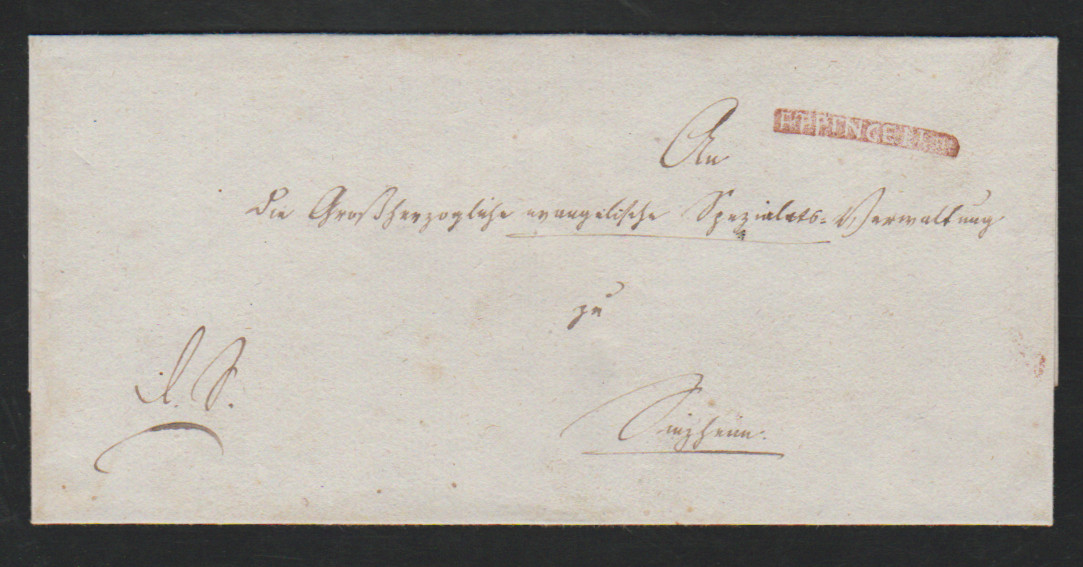 EPPINGEN
An
die Großherzogliche evangelische Spezialats-Verwaltung
zu
Sinzheim.
d. S.